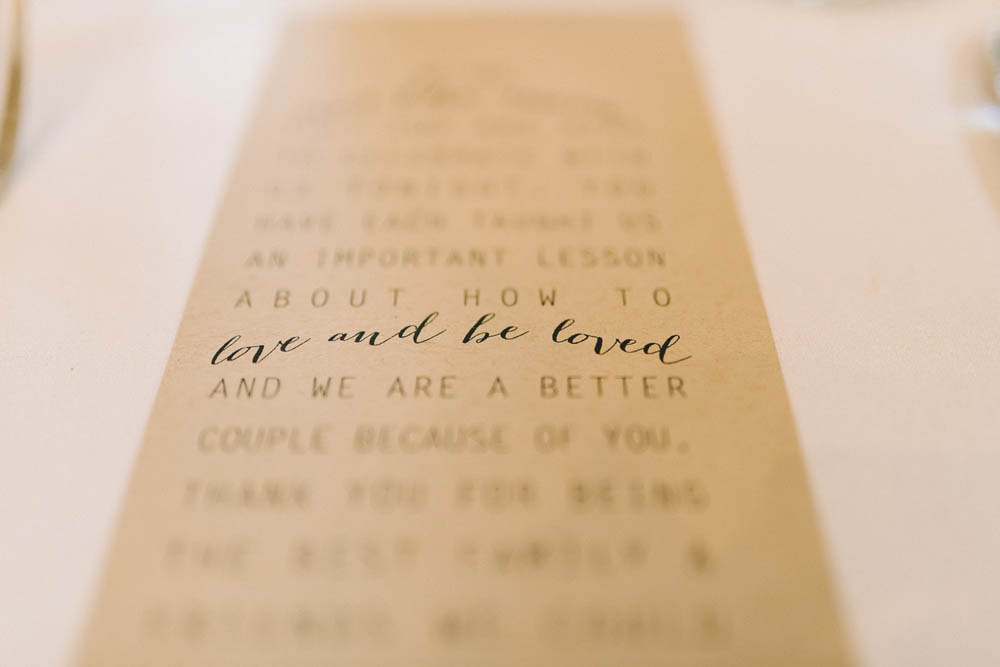 US TONIGHT. YOU
HAVE EACH TAUGHT US
AN IMPORTANT LESSON
ABOUT HOW TO
love and be loved
AND WE ARE A BETTER
COUPLE BECAUSE OF YOU.
THANK YOU FOR BEING
THE BEST FAMILY &
FRIENDS WE COULD